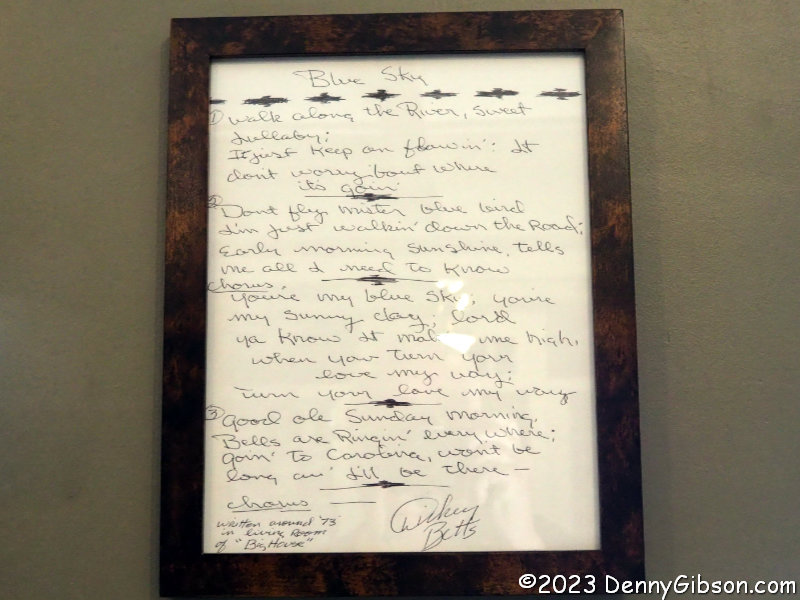 Blue Sky
① walk along the River, sweet
Lullaby;
It just keep on flowin'; It
don't worry 'bout where
it's goin'
② Don't fly, mister blue bird
I'm just walkin' down the Road;
Early morning sunshine, tells
me all I need to know
chorus,
you're my blue sky; you're
my sunny day, lord
ya know it me high,
when you turn your
love my way;
Turn your love my way
③ Good ole Sunday morning,
Bells are Ringin' every where;
goin' to Carolina, won't be
long an' I'll be there —
chorus —
written around '73
in living Room
of "Big House"
Dickey
Betts
©2023 DennyGibson.com